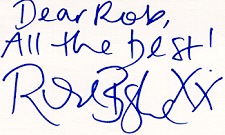 Dear Rob,
All the best!
Rose B xx